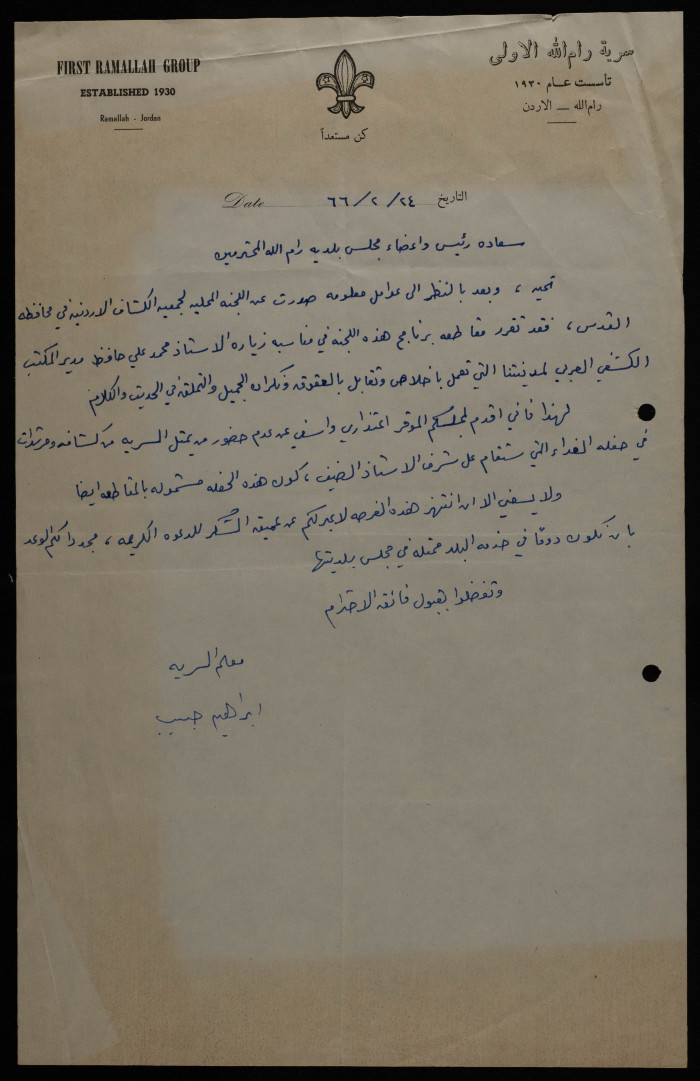 FIRST RAMALLAH GROUP
ESTABLISHED 1930
Ramallah - Jordan
سرية رام الله الاولى
تأسست عام ١٩٣٠
رام الله — الاردن
كن مستعداً
Date ٦٦/٢/٢٤ التاريخ
سعاده رئيس واعضاء مجلس بلديه رام الله المحترمين
تحيه ، وبعد بالنظر الى عوامل معلومه صدرت عن اللجنه المحليه لجمعيه الكشاف الاردنيه في محافظه
القدس ، فقد تقرر مقاطعه برنامج هذه اللجنه في مناسبه زياره الاستاذ محمد علي حافظ مدير المكتب
الكشفي العربي لمدينتنا التي تعمل باخلاص وتقابل بالعقوق ونكران الجميل والتملق في الحديث والكلام
لهذا فاني اقدم لمجلسكم الموقر اعتذاري واسفي عن عدم حضور من يمثل السريه من كشافه ومرشدات
في حفله الغداء التي ستقام على شرف الاستاذ الضيف ، كون هذه الحفله مشموله بالمقاطعه ايضا
ولا يسعني الا ان انتهز هذه الفرصه لاعبر لكم عن عميق الشكر للدعوه الكريمه ، مجددا لكم الوعد
بان نكون دوما في خدمه البلد ممثله في مجلس بلديتها
وتفضلوا بقبول فائق الاحترام
معلم السريه
ابراهيم حبيب